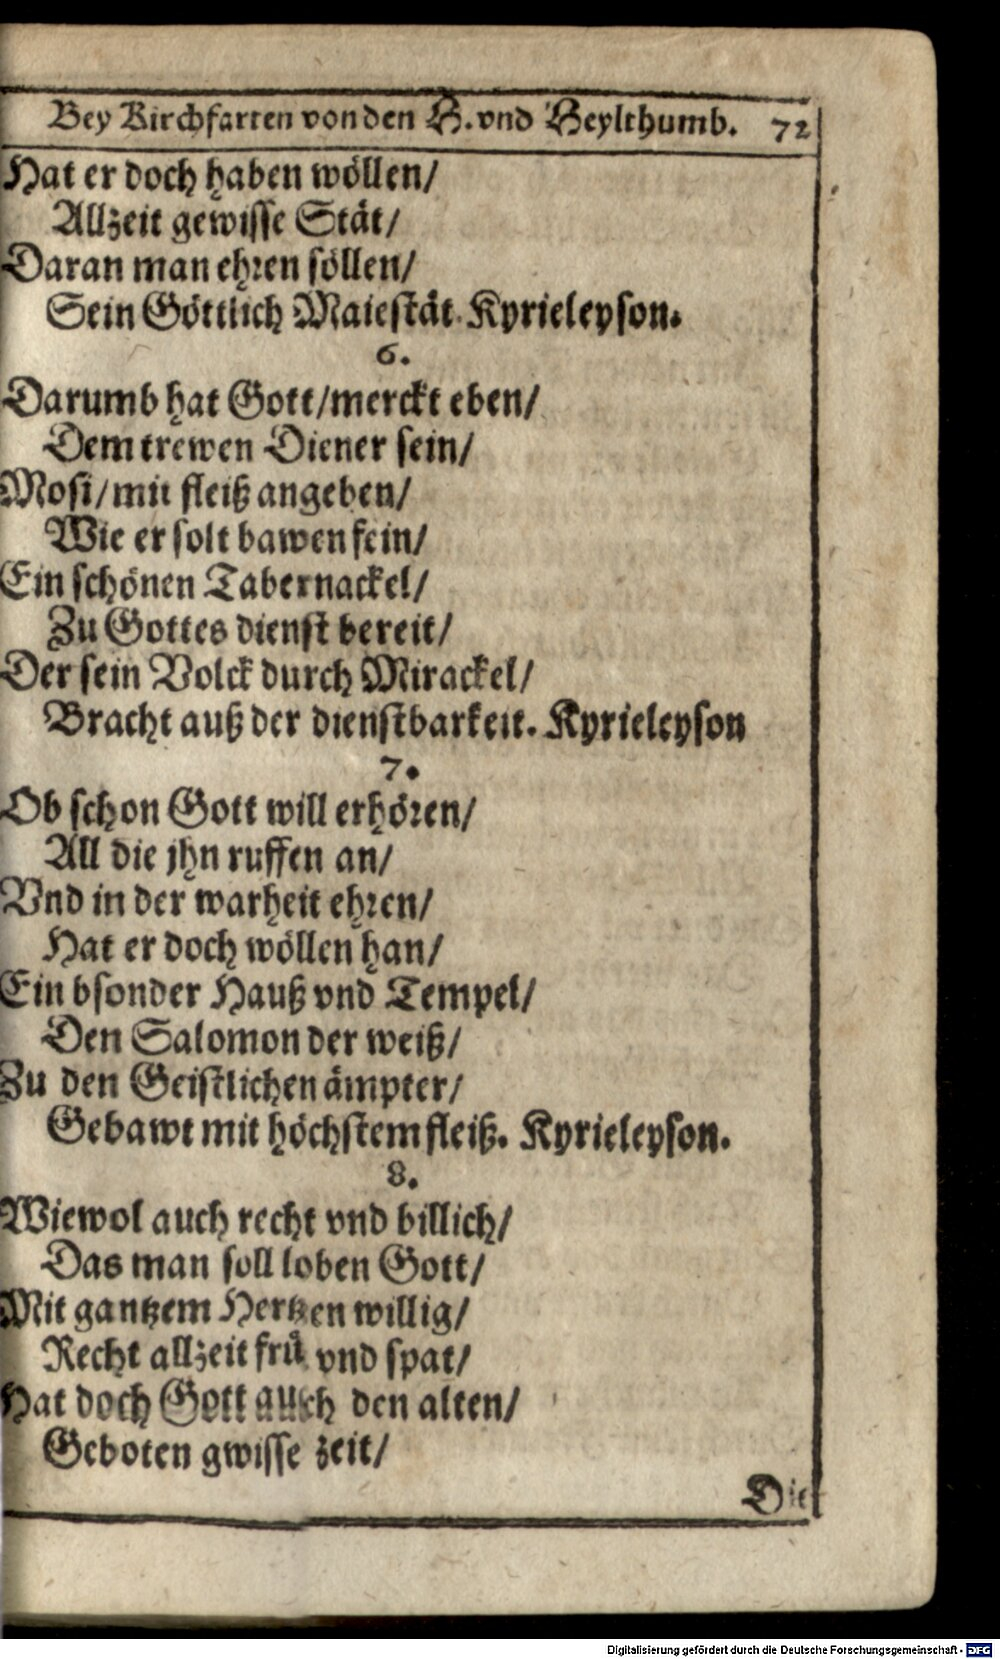 Bey Kirchfarten von den H. vnd Heylthumb. 72
Hat er doch haben wöllen/
Allzeit gewisse Stät/
Daran man ehren söllen/
Sein Göttlich Maiestät. Kyrieleyson.
6.
Darumb hat Gott/merckt eben/
Dem trewen Diener sein/
Mosi/mit fleiß angeben/
Wie er solt bawen fein/
Ein schönen Tabernackel/
Zu Gottes dienst bereit/
Der sein Volck durch Mirackel/
Bracht auß der dienstbarkeit. Kyrieleyson
7.
Ob schon Gott will erhören/
All die jhn ruffen an/
Vnd in der warheit ehren/
Hat er doch wöllen han/
Ein bsonder Hauß vnd Tempel/
Den Salomon der weiß/
Zu den Geistlichen ämpter/
Gebawt mit höchstem fleiß. Kyrieleyson.
8.
Wiewol auch recht vnd billich/
Das man soll loben Gott/
Mit gantzem Hertzen willig/
Recht allzeit frü vnd spat/
Hat doch Gott auch den alten/
Geboten gwisse zeit/
Die
Digitalisierung gefördert durch die Deutsche Forschungsgemeinschaft - DFG